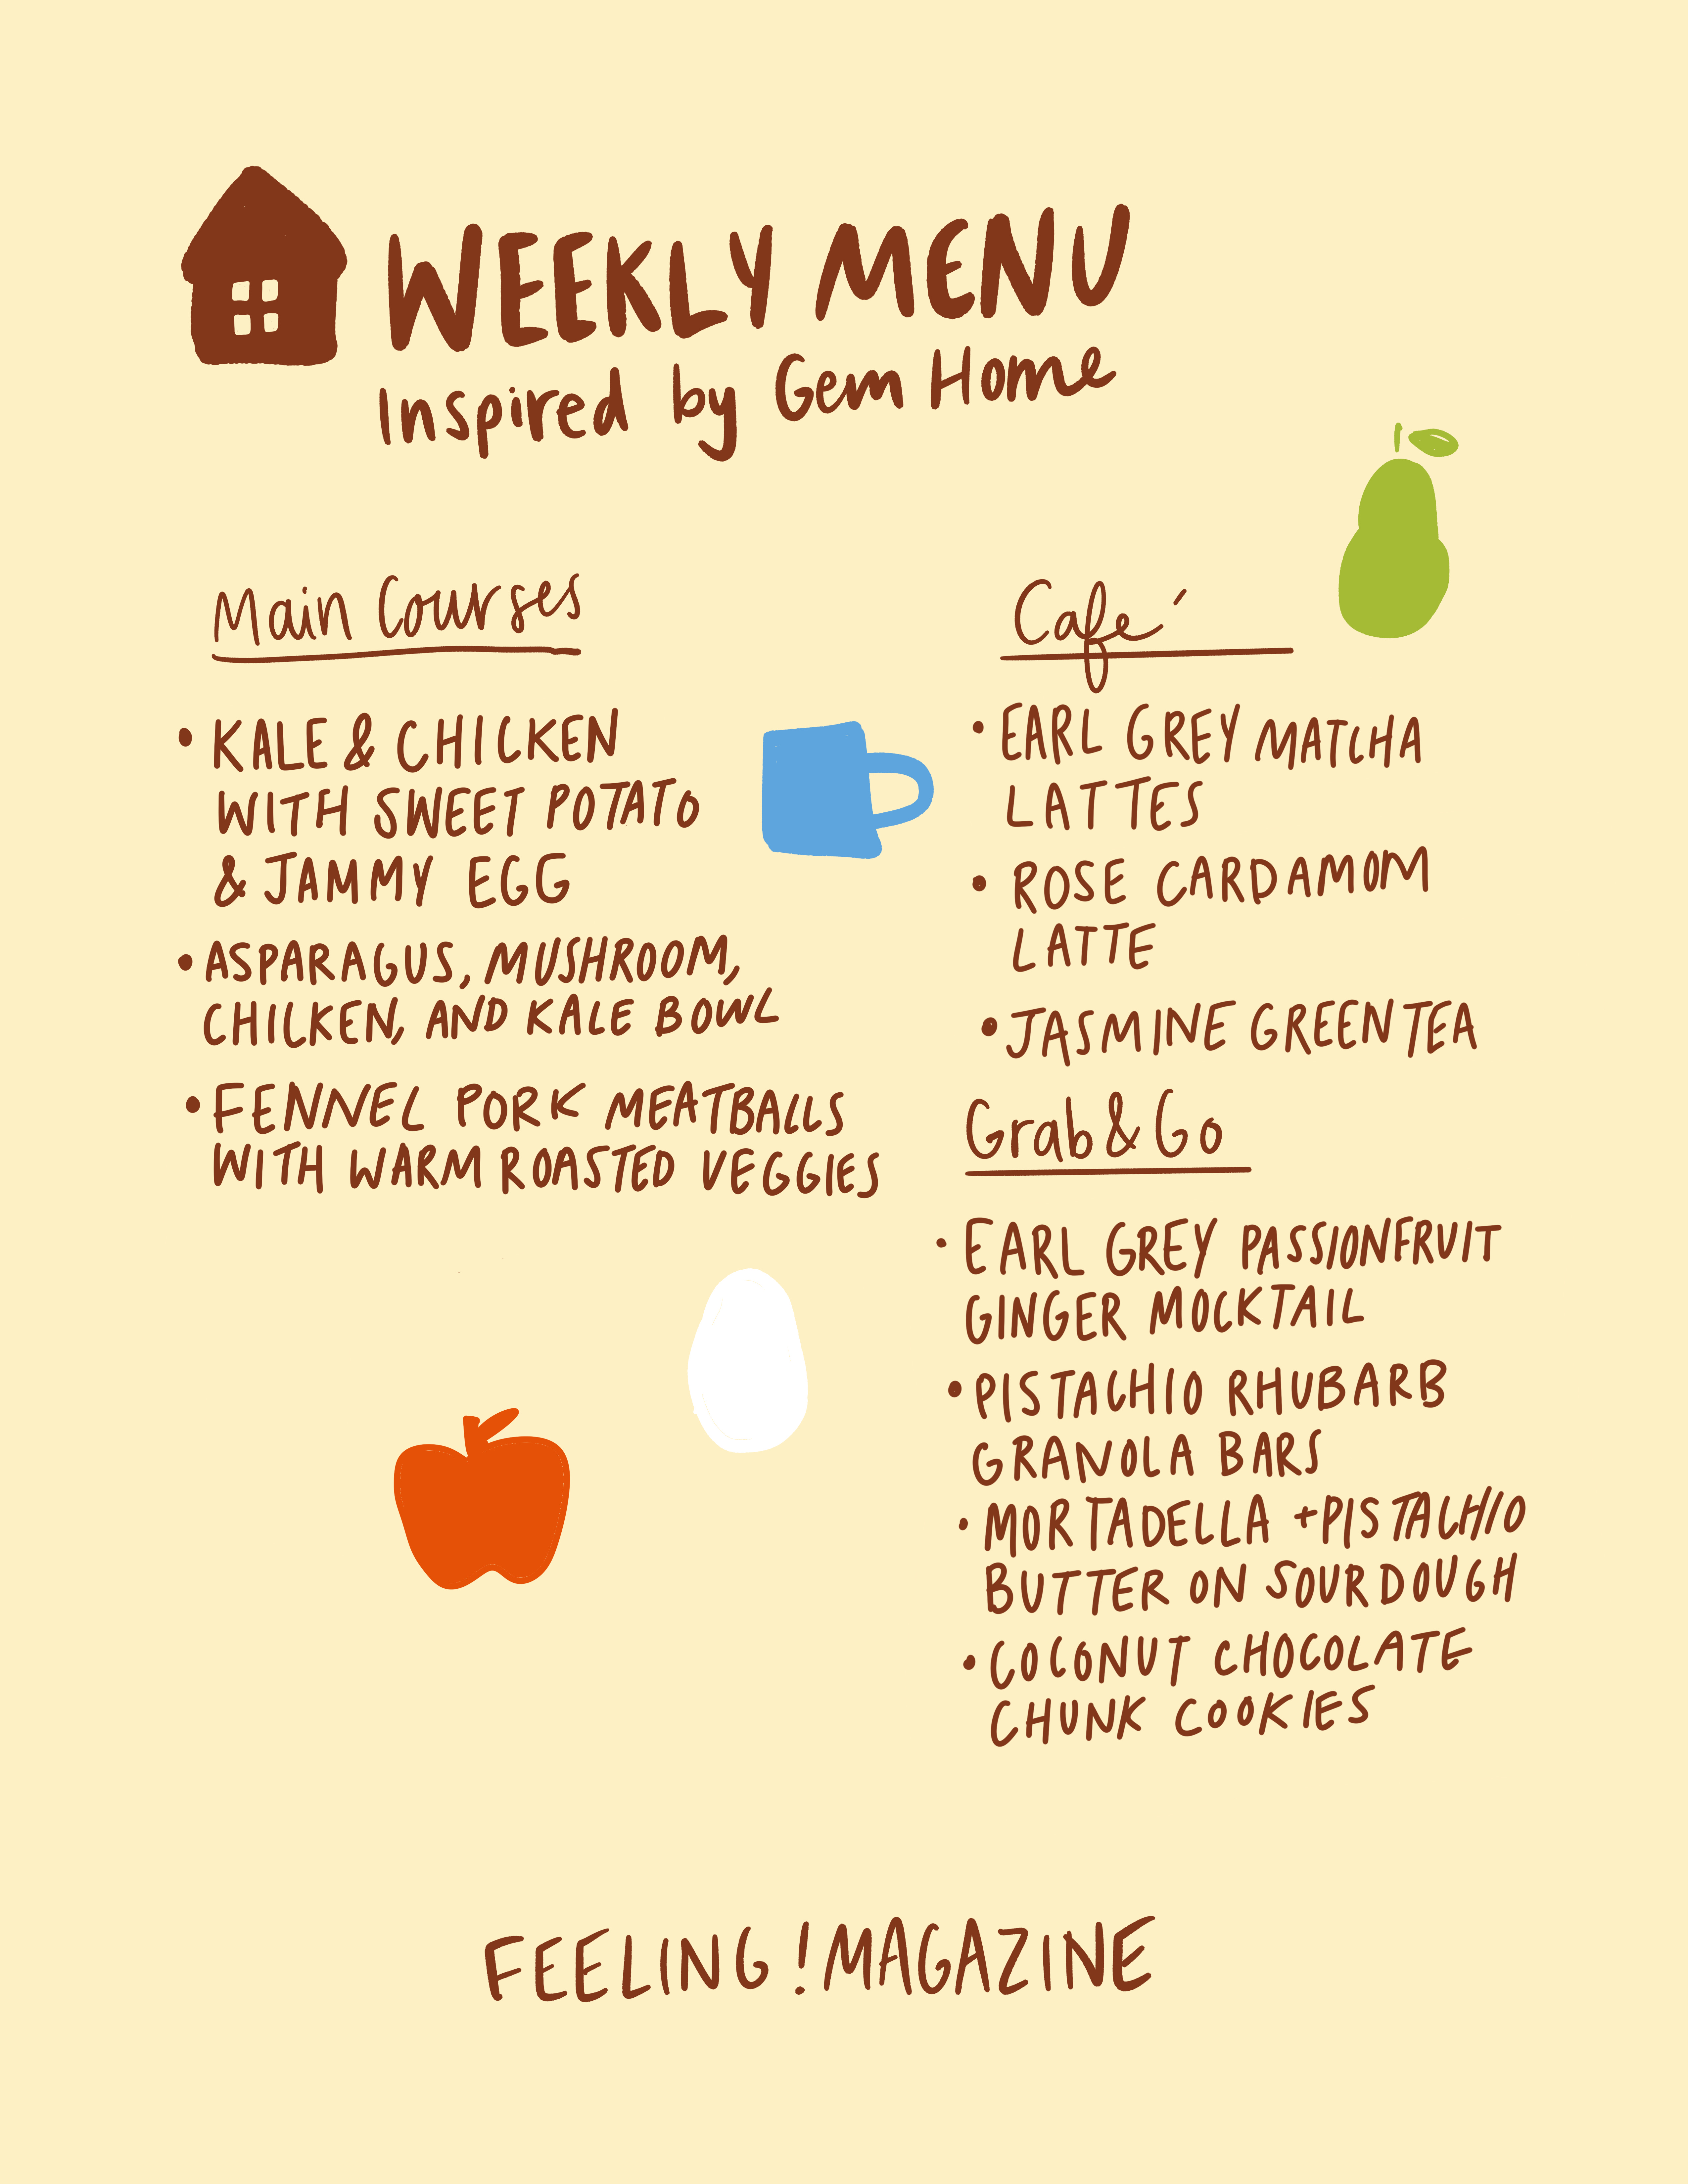 WEEKLY MENU
Inspired by Gem Home
Main Courses
• KALE & CHICKEN
WITH SWEET POTATO
& JAMMY EGG
• ASPARAGUS, MUSHROOM,
CHICKEN, AND KALE BOWL
• FENNEL PORK MEATBALLS
WITH WARM ROASTED VEGGIES
Café
• EARL GREY MATCHA
LATTES
• ROSE CARDAMOM
LATTE
• JASMINE GREEN TEA
Grab & Go
• EARL GREY PASSIONFRUIT
GINGER MOCKTAIL
• PISTACHIO RHUBARB
GRANOLA BARS
• MORTADELLA + PISTACHIO
BUTTER ON SOURDOUGH
• COCONUT CHOCOLATE
CHUNK COOKIES
FEELING ! MAGAZINE